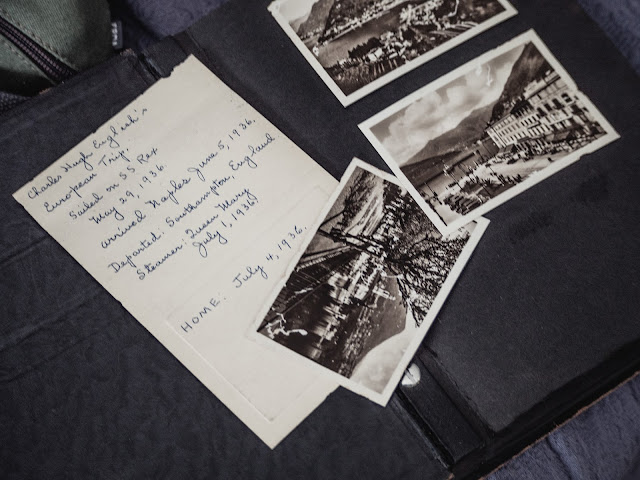 Charles Hugh English's
European Trip.
Sailed on SS Rex
May 29, 1936.
arrived Naples June 5, 1936.
Departed: Southampton, England
Steamer: Queen Mary
July 1, 1936)
HOME: July 4, 1936.